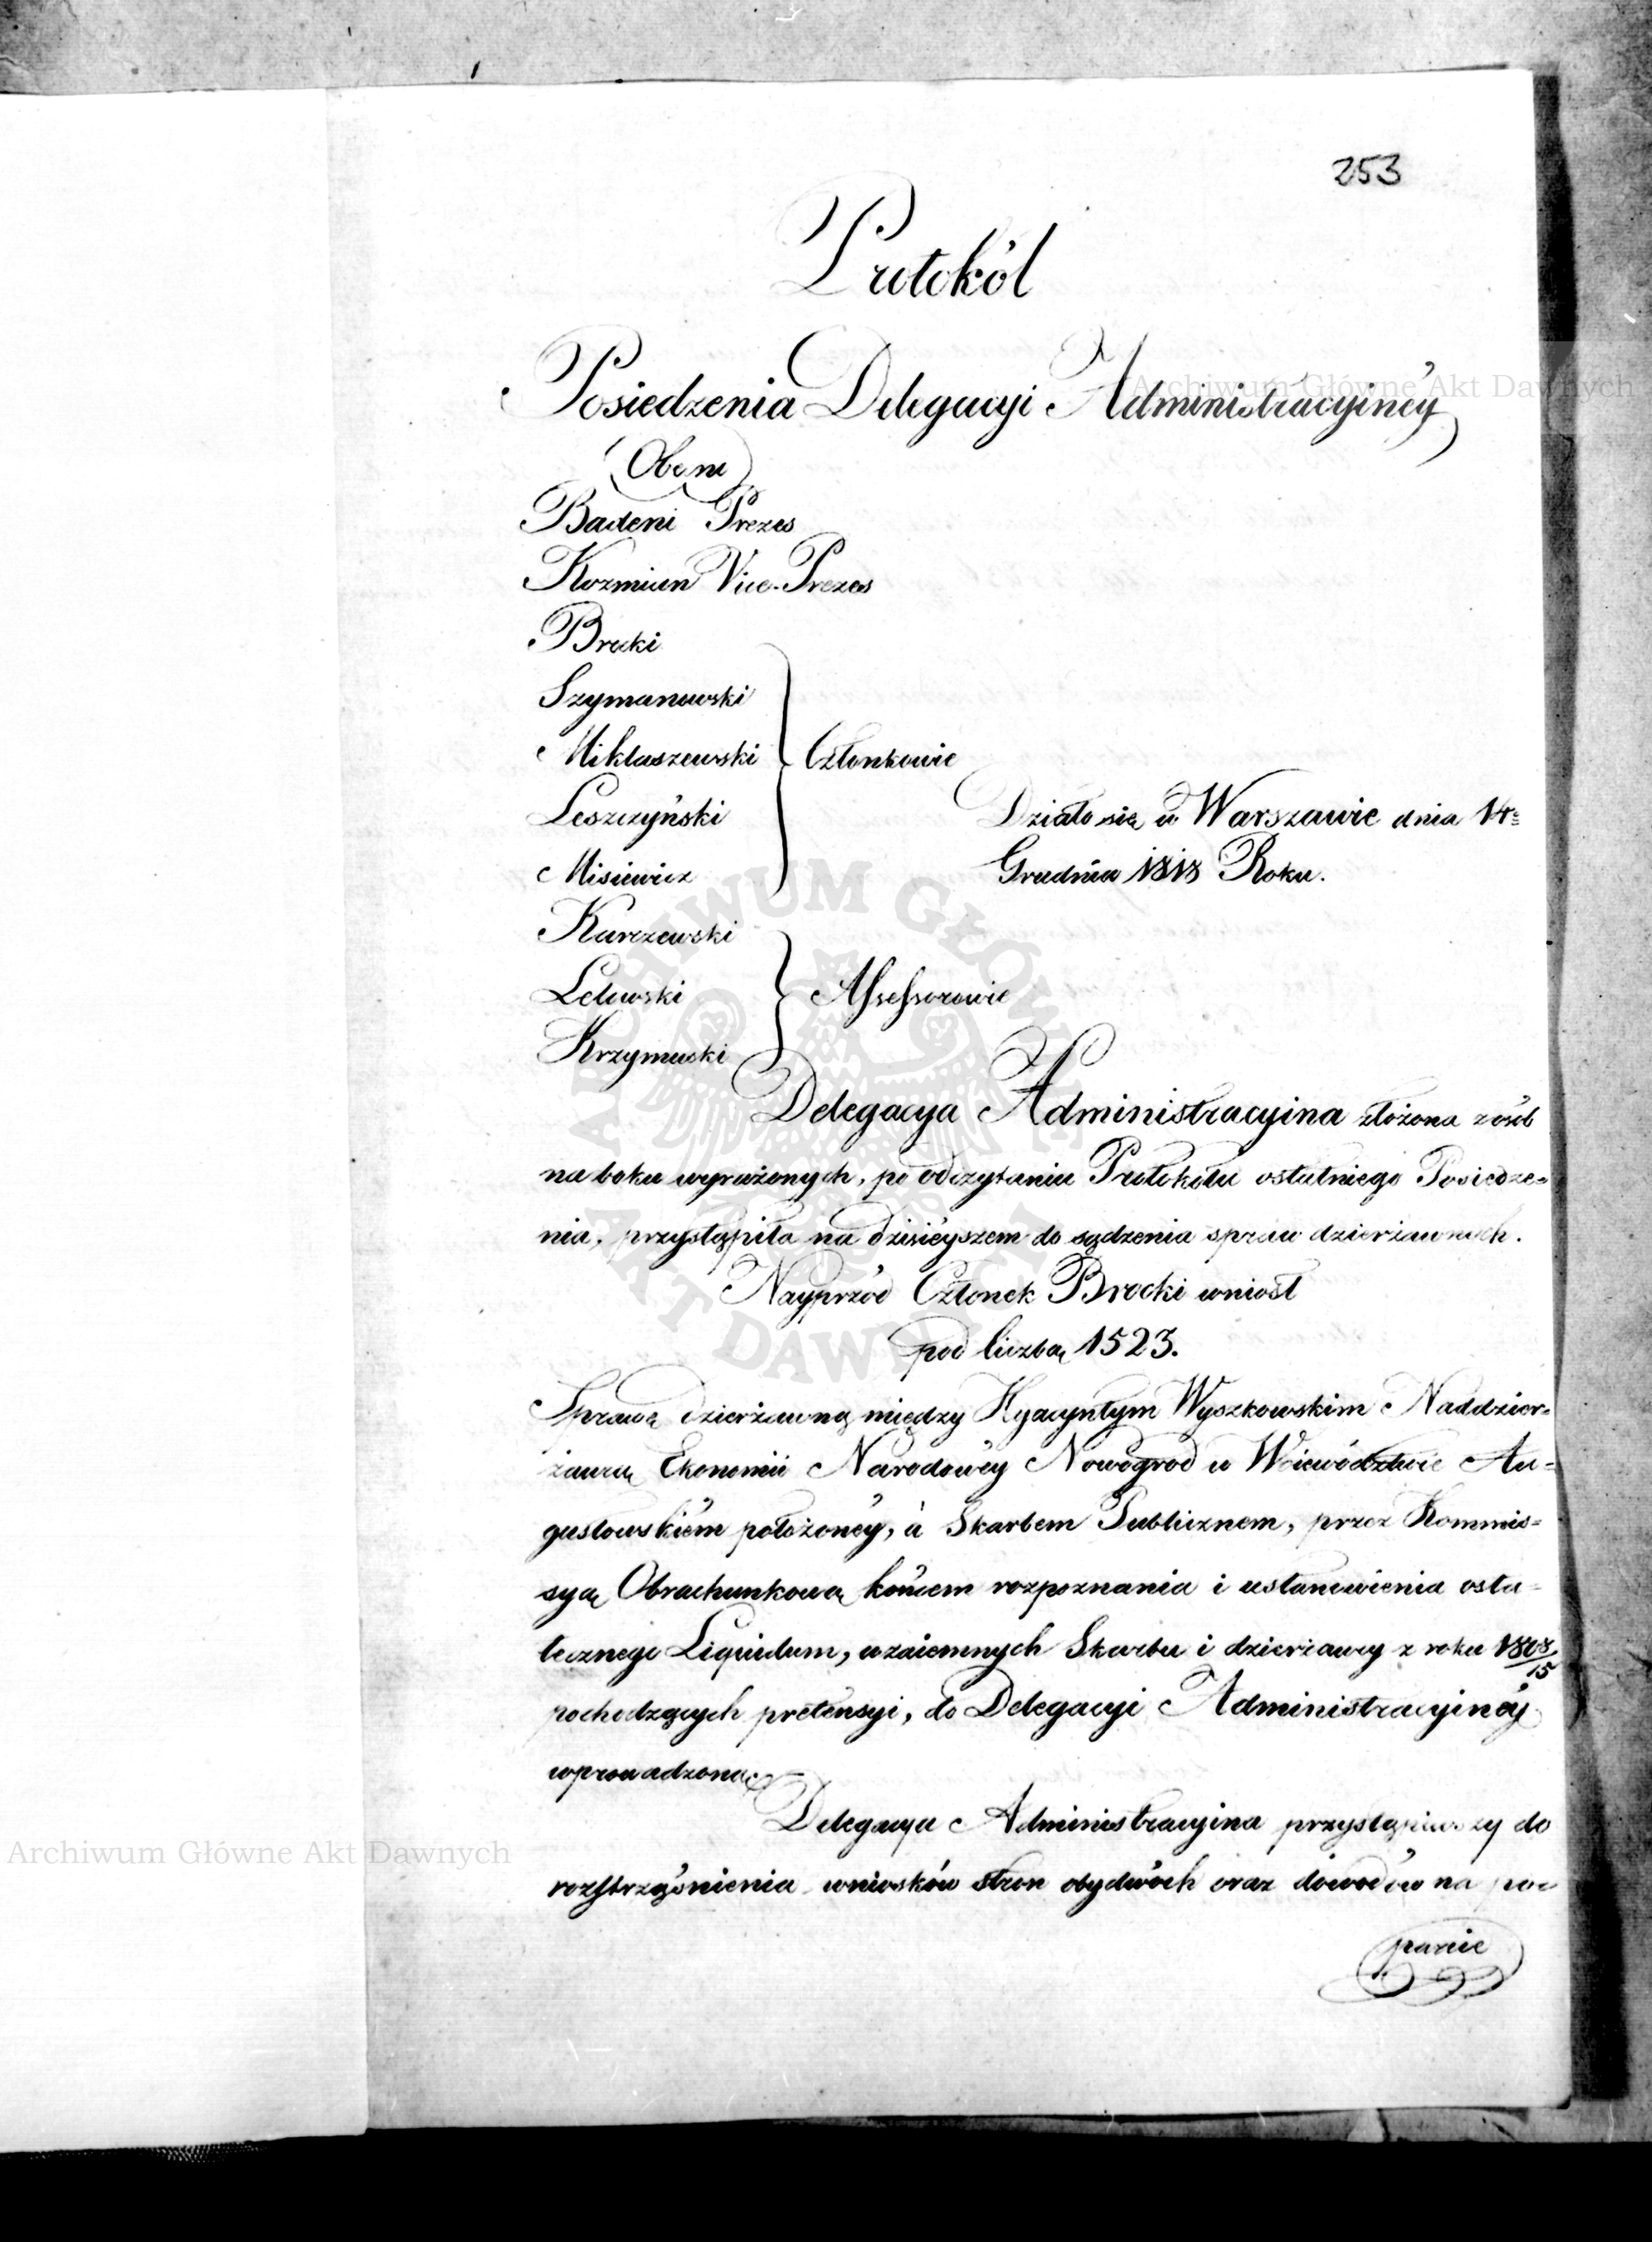 253
Protokół
Posiedzenia Delegacyi Administracyinéy
Obecni
Badeni Prezes
Kozmian Vice-Prezes
Brocki
Szymanowski
Miklaszewski
Członkowie
Leszczyński
Działo się w Warszawie dnia 14=
Misiewicz
Grudnia 1818 Roku.
Karczewski
Lelowski
Assessorowie
Krzymuski
Delegacya Administracyina złożona z osób
na boku wyrażonych, po odczytaniu Protokołu ostatniego Posiedze=
nia, przystąpiła na dzisieyszem do sądzenia spraw dzierżawnych.
Nayprzód Członek Brocki wniosł
pod liczbą 1523.
Sprawę dzierżawną między Hyacyntym Wyszkowskim Naddzier=
żawcą Ekonomii Narodowéy Nowogrod w Woiewództwie Au=
gustowskiém położonéy, à Skarbem Publicznem, przez Kommis=
syą Obrachunkową końcem rozpoznania i ustanowienia osta=
tecznego Liquidum, wzaiemnych Skarbu i dzierżawcy z roku 1808/15
pochodzących pretensyi, do Delegacyi Administracyinéy
wprowadzoną.
Delegacya Administracyina przystąpiwszy do
rozstrząśnienia wniosków stron obydwóch oraz dowodów na po=
parcie
Archiwum Główne Akt Dawnych
Archiwum Główne Akt Dawnych
ARCHIWUM GŁÓWNE AKT DAWNYCH